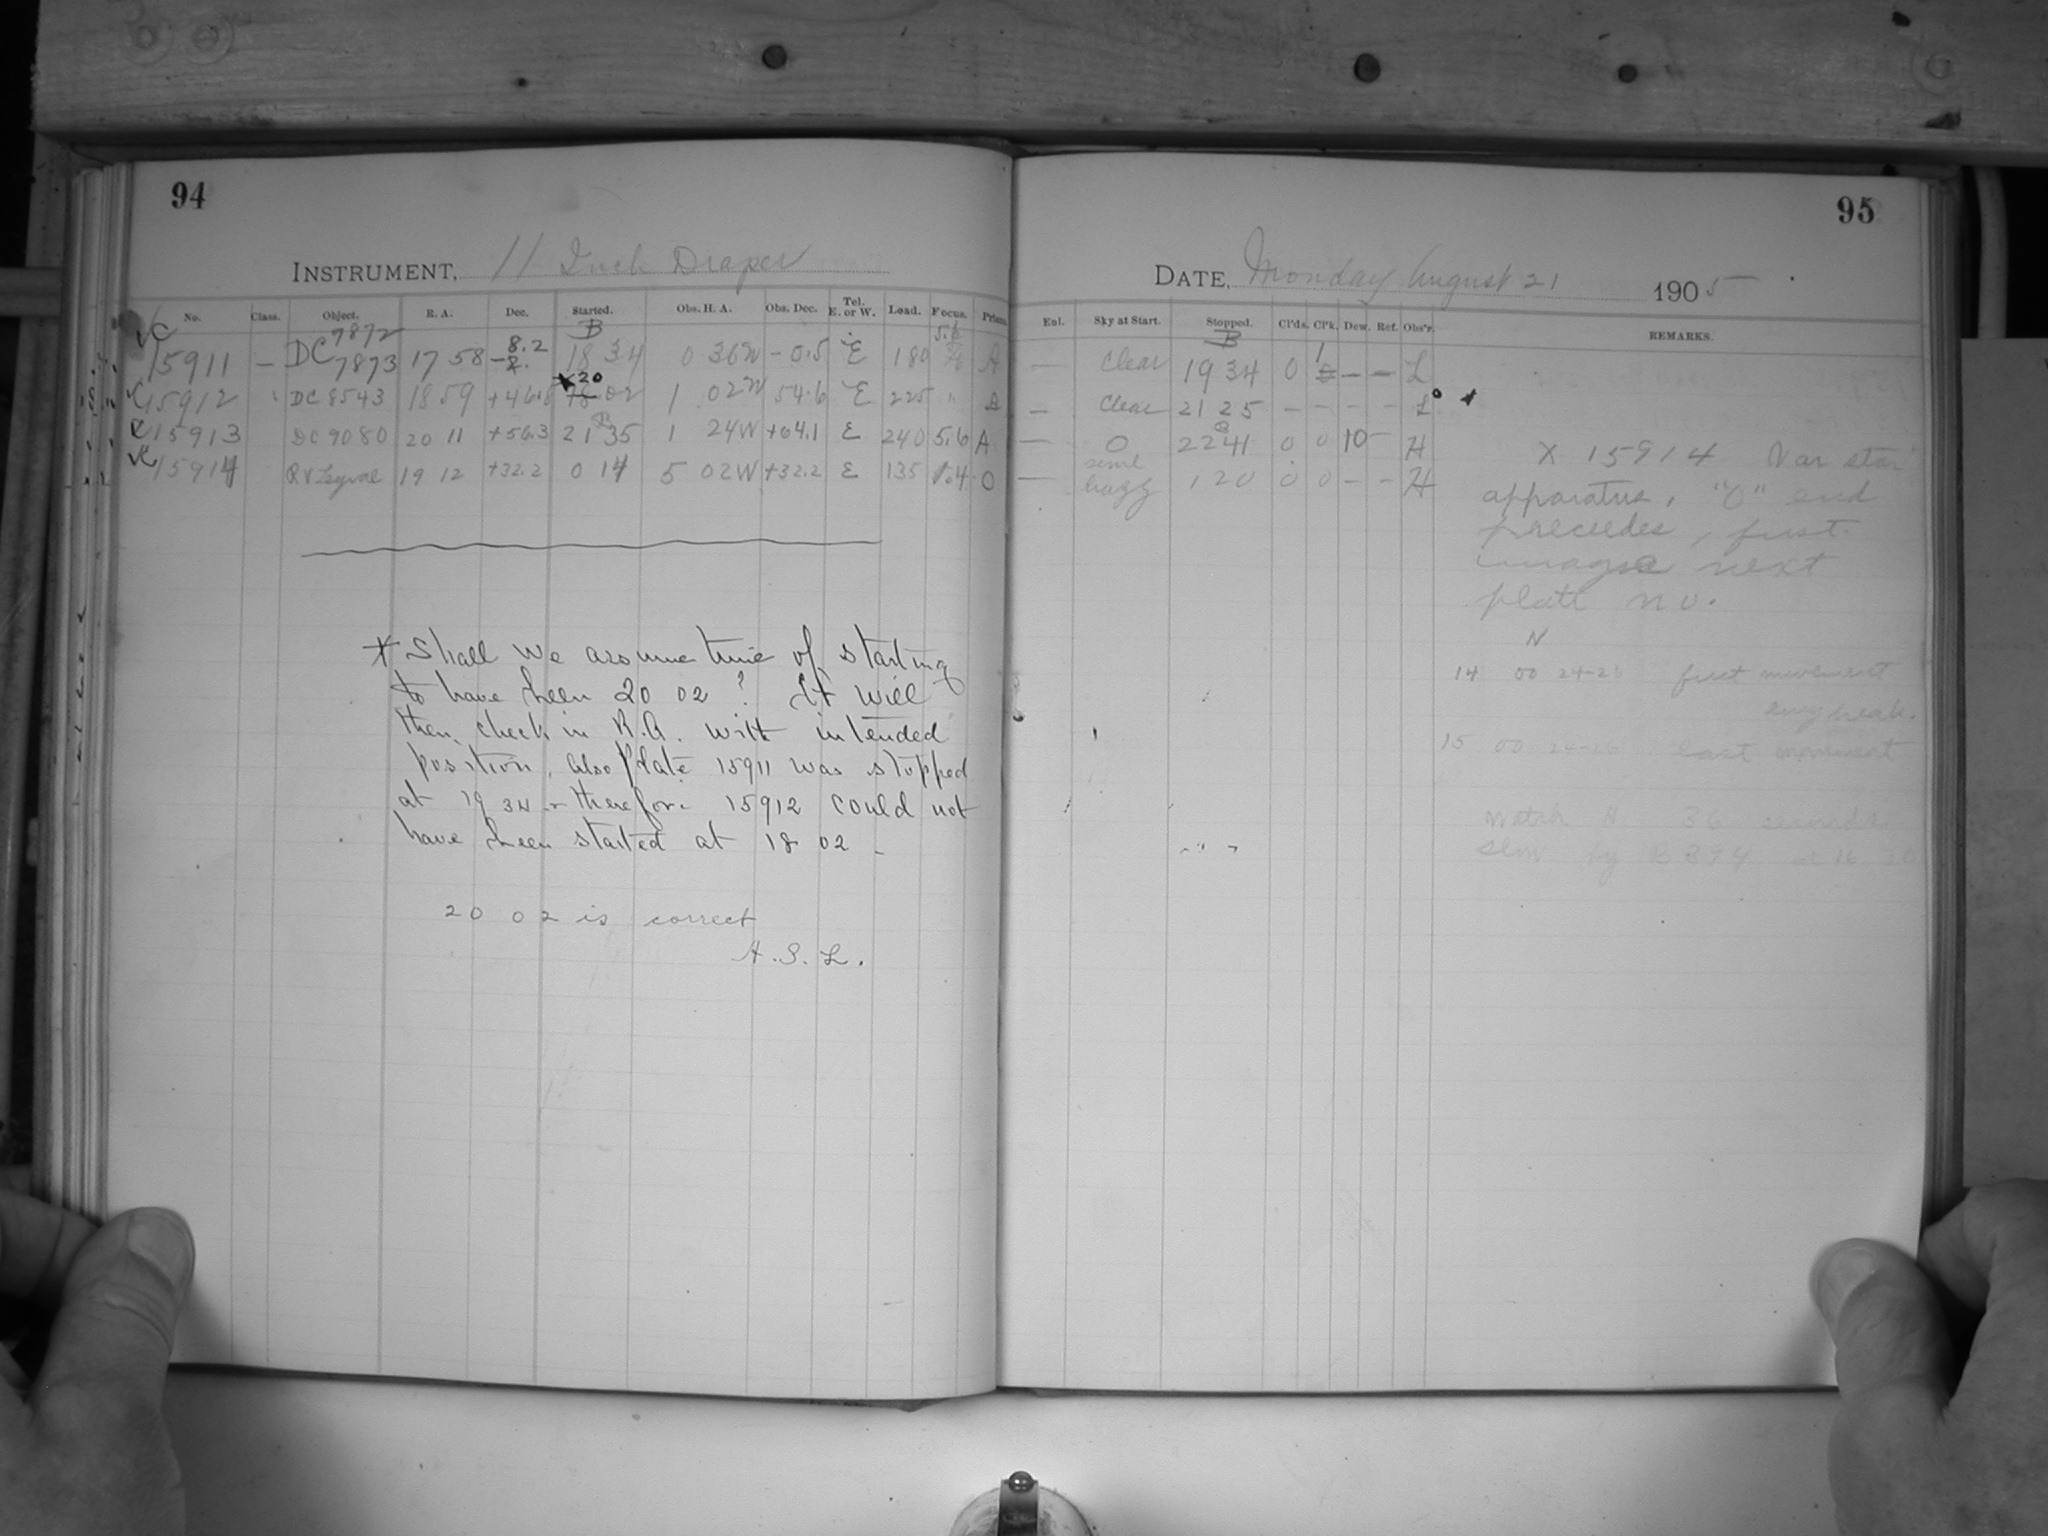 94
95
INSTRUMENT, 11 Inch Draper
DATE, Monday August 21 1905
No. Class. Object. R. A. Dec. Started. Obs. H. A. Obs. Dec. Tel. E. or W. Load. Focus. Prism.
Enl. Sky at Start. Stopped. Cl'ds. Cl'k. Dew. Ref. Obs'r. REMARKS.
B
B
7872 8.2 5.6
15911 – DC 7873 17 58 18 34 0 36W – 0.5 E 180 A
— Clear 19 34 0 1 – – L
20
15912 DC 8543 18 59 18 02 1 02W 54.6 E 225 " A
— Clear 21 25 – – – – L
15913 DC 9080 20 11 +56.3 21 35 1 24W +64.1 E 240 5.6 A
— 0 22 41 0 0 10 – H
15914 19 12 +32.2 0 14 5 02W +32.2 E 135 O
— hazy 1 20 0 0 – – H
X 15914 Var star
apparatus, "O" end
preceedes, first
image next
plate no.
N
14 00 24-26 first movement
15 00 24-26 last movement
Watch H 36 seconds
slow by
* Shall we assume time of starting
to have been 20 02 ? It will
then check in R.A. with intended
position, also Plate 15911 was stopped
at 19 34 therefore 15912 could not
have been started at 18 02 –
20 02 is correct
H. S. L.